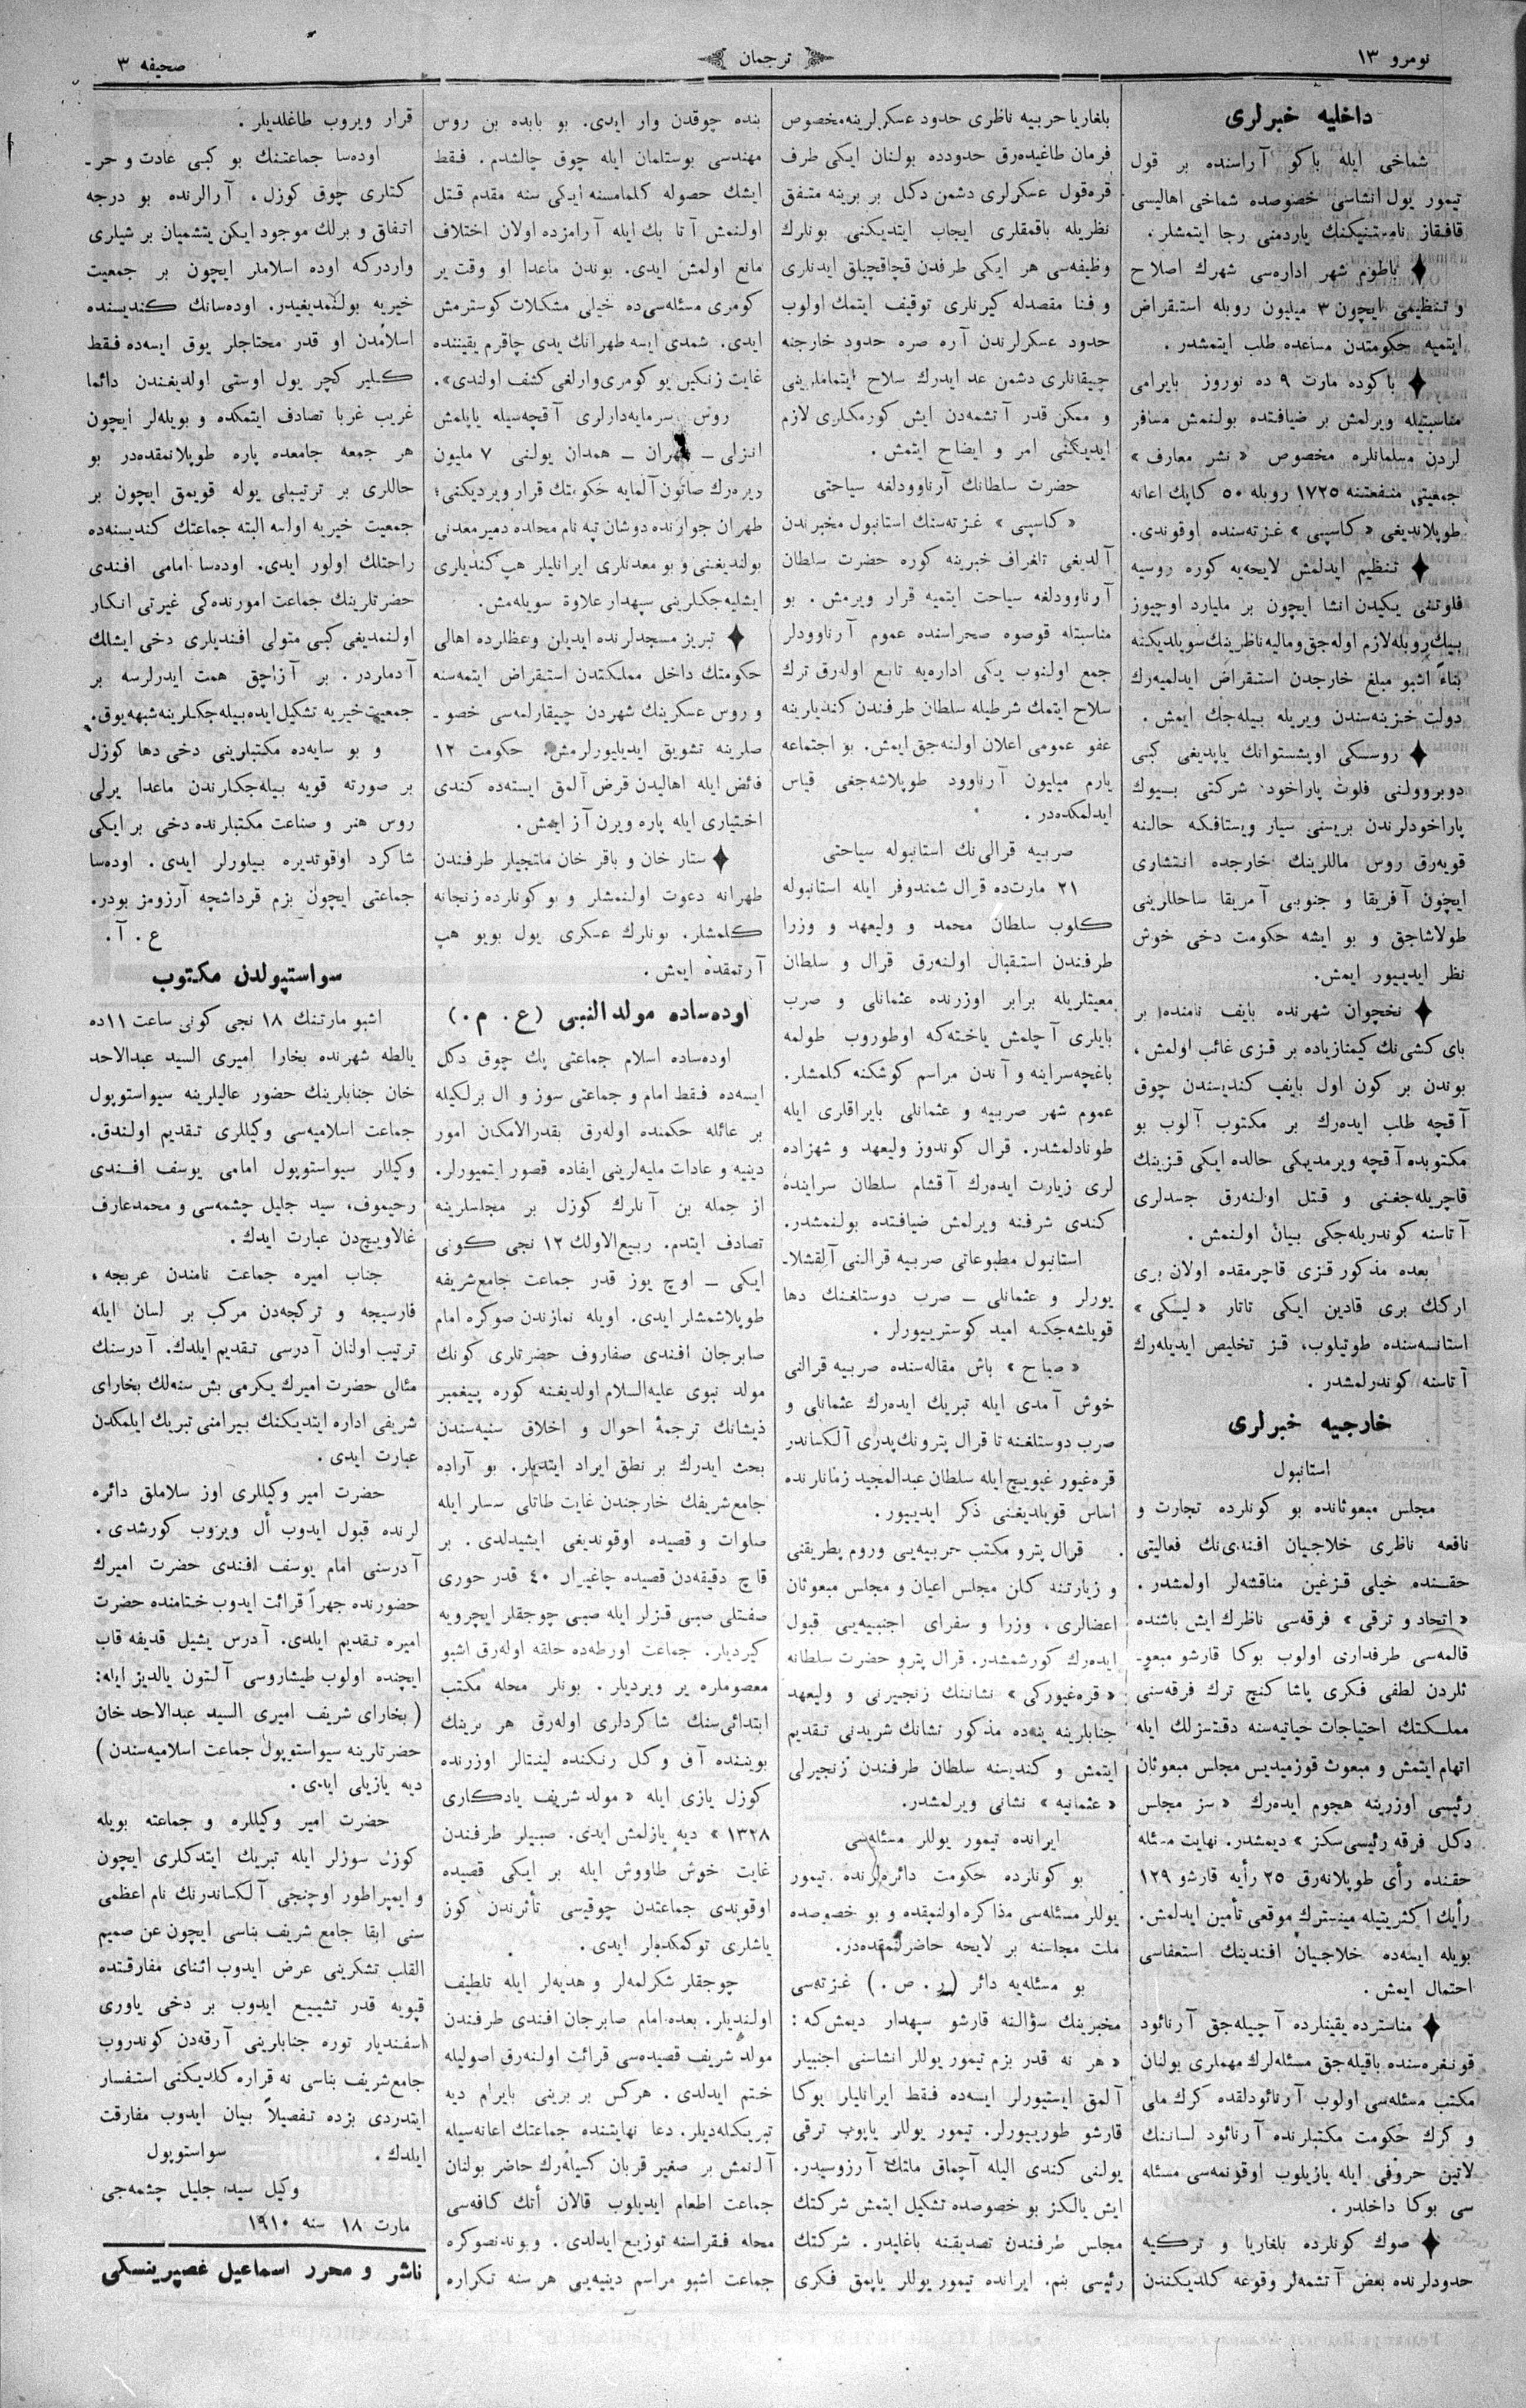 نومرو ۱۳
ترجمان
صحیفه ۳
داخلیه خبرلری
شماخی ایله باكو آراسنده بر قول
تیمور یول انشاسی خصوصده شماخی اهالیسی
قافقاز نامستنیكنك یاردمنی رجا ایتمشلر.
باطوم شهر اداره‌سی شهرك اصلاح
و تنظیمی ایچون ۳ میلیون روبله استقراض
ایتمیه حكومتدن مساعده طلب ایتمشدر.
باكوده مارت ۹ ده نوروز بایرامی
مناسبتیله ویرلمش بر ضیافتده بولنمش مسافر
لردن مسلمانلره مخصوص « نشر معارف »
جمعیتی منفعتنه ۱۷۲۵ روبله ۵۰ كاپك اعانه
طوپلاندیغی « كاسپی » غزته‌سنده اوقوندی.
تنظیم ایدلمش لایحه‌یه كوره روسیه
فلوتنی یكیدن انشا ایچون بر ملیارد اوچیوز
بیك روبله لازم اوله‌جق و مالیه ناظرینك سویلدیكنه
بناءً اشبو مبلغ خارجدن استقراض ایدلمیه‌رك
دولت خزینه‌سندن ویریله بیله‌جك ایمش.
روسسكی اوبشستوانك یاپدیغی كبی
دوبروولنی فلوت پاراخود شركتی بیوك
پاراخودلرندن بریسنی سیار ویستافكه حالنه
قویه‌رق روس ماللرینك خارجده انتشاری
ایچون آفریقا و جنوبی آمریقا ساحللرینی
طولاشاجق و بو ایشه حكومت دخی خوش
نظر ایدییور ایمش.
نخچوان شهرنده بایف نامنده بر
بای كشی‌نك كیمنازیاده بر قزی غائب اولمش،
بوندن بر كون اول بایف كندیسندن چوق
آقچه طلب ایده‌رك بر مكتوب آلوب بو
مكتوبده آقچه ویرمدیكی حالده ایكی قزینك
قاچریله‌جغنی و قتل اولنه‌رق جسدلری
آتاسنه كوندریله‌جكی بیان اولنمش.
بعده مذكور قزی قاچرمقده اولان بری
اركك بری قادین ایكی تاتار « لیسكی »
استانسه‌سنده طوتیلوب، قز تخلیص ایدیله‌رك
آتاسنه كوندرلمشدر.
خارجیه خبرلری
استانبول
مجلس مبعوثانده بو كونلرده تجارت و
نافعه ناظری خلاجیان افندی‌نك فعالیتی
حقنده خیلی قزغین مناقشه‌لر اولمشدر.
« اتحاد و ترقی » فرقه‌سی ناظرك ایش باشنده
قالمه‌سی طرفداری اولوب بوكا قارشو مبعو-
ثلردن لطفی فكری پاشا كنج ترك فرقه‌سنی
مملكتك احتیاجات حیاتیه‌سنه دقتسزلك ایله
اتهام ایتمش و مبعوث قوزمیدیس مجلس مبعوثان
رئیسی اوزرینه هجوم ایده‌رك « سز مجلس
دكل فرقه رئیسی سكز » دیمشدر. نهایت مسئله
حقنده رأی طوپلانه‌رق ۲۵ رأیه قارشو ۱۲۹
رأیك اكثریتیله مینسترك موقعی تأمین ایدلمش.
بویله ایسه‌ده خلاجیان افندینك استعفاسی
احتمال ایمش.
مناسترده یقینلرده آچیله‌جق آرنائود
قونغره‌سنده باقیله‌جق مسئله‌لرك مهملری بولنان
مكتب مسئله‌سی اولوب آرنائودلقده كرك ملی
و كرك حكومت مكتبلرنده آرنائود لساننك
لاتین حروفی ایله یازیلوب اوقونمه‌سی مسئله
سی بوكا داخلدر.
صوك كونلرده بلغاریا و تركیه
حدودلرنده بعض آتشمه‌لر وقوعه كلدیكندن
بلغاریا حربیه ناظری حدود عسكرلرینه مخصوص
فرمان طاغیده‌رق حدودده بولنان ایكی طرف
قره‌قول عسكرلری دشمن دكل بر برینه متفق
نظریله باقمقلری ایجاب ایتدیكنی بونلرك
وظیفه‌سی هر ایكی طرفدن قچاقچیلق ایدنلری
و فنا مقصدله كیرنلری توقیف ایتمك اولوب
حدود عسكرلرندن آره صره حدود خارجنه
چیقانلری دشمن عد ایدرك سلاح ایتماملرینی
و ممكن قدر آتشمه‌دن ایش كورمكلری لازم
ایدیكنی امر و ایضاح ایتمش.
حضرت سلطانك آرناوودلغه سیاحتی
« كاسپی » غزته‌سنك استانبول مخبرندن
آلدیغی تلغراف خبرینه كوره حضرت سلطان
آرناوودلغه سیاحت ایتمیه قرار ویرمش. بو
مناسبتله قوصوه صحراسنده عموم آرناوودلر
جمع اولنوب یكی اداره‌یه تابع اوله‌رق ترك
سلاح ایتمك شرطیله سلطان طرفندن كندیلرینه
عفو عمومی اعلان اولنه‌جق ایمش. بو اجتماعه
یارم میلیون آرناوود طوپلاشه‌جغی قیاس
ایدلمكده‌در.
صربیه قرالی‌نك استانبوله سیاحتی
۲۱ مارت‌ده قرال شمندوفر ایله استانبوله
كلوب سلطان محمد و ولیعهد و وزرا
طرفندن استقبال اولنه‌رق قرال و سلطان
معیتلریله برابر اوزرنده عثمانلی و صرب
بایلری آچلمش یاخته‌كه اوطوروب طولمه
باغچه‌سراینه و آندن مراسم كوشكنه كلمشلر.
عموم شهر صربیه و عثمانلی بایراقلری ایله
طونادلمشدر. قرال كوندوز ولیعهد و شهزاده
لری زیارت ایده‌رك آقشام سلطان سراینده
كندی شرفنه ویرلمش ضیافتده بولنمشدر.
استانبول مطبوعاتی صربیه قرالنی آلقشلا-
یورلر و عثمانلی — صرب دوستلغنك دها
قویلشه‌جكنه امید كوسترییورلر.
« صباح » باش مقاله‌سنده صربیه قرالنی
خوش آمدی ایله تبریك ایده‌رك عثمانلی و
صرب دوستلغنه تا قرال پترونك پدری آلكساندر
قره‌غیورغیویچ ایله سلطان عبدالمجید زمانلرنده
اساس قویلدیغنی ذكر ایدییور.
قرال پترو مكتب حربیه‌یی و روم پطریقنی
و زیارتنه كلن مجلس اعیان و مجلس مبعوثان
اعضالری، وزرا و سفرای اجنبیه‌یی قبول
ایده‌رك كورشمشدر. قرال پترو حضرت سلطانه
« قره‌غیوركی » نشاننك زنجیرنی و ولیعهد
جنابلرینه ینه‌ده مذكور نشانك شریدنی تقدیم
ایتمش و كندیسنه سلطان طرفندن زنجیرلی
« عثمانیه » نشانی ویرلمشدر.
ایرانده تیمور یوللر مسئله‌سی
بو كونلرده حكومت دائره‌لرنده تیمور
یوللر مسئله‌سی مذاكره اولنمقده و بو خصوصده
ملت مجلسنه بر لایحه حاضرلنمقده‌در.
بو مسئله‌یه دائر (ر. ص.) غزته‌سی
مخبرینك سؤالنه قارشو سپهدار دیمش‌كه:
« هر نه قدر بزم تیمور یوللر انشاسنی اجنبیلر
آلمق ایستیورلر ایسه‌ده فقط ایرانلیلر بوكا
قارشو طورییورلر. تیمور یوللر یاپوب ترقی
یولنی كندی الیله آچماق ملتك آرزوسیدر.
ایش یالكز بو خصوصده تشكیل ایتمش شركتك
مجلس طرفندن تصدیقنه باغلیدر. شركتك
رئیسی بنم. ایرانده تیمور یوللر یاپمق فكری
بنده چوقدن وار ایدی. بو بابده بن روس
مهندسی بوستلمان ایله چوق چالشدم. فقط
ایشك حصوله كلمامسنه ایكی سنه مقدم قتل
اولنمش آتا بك ایله آرامزده اولان اختلاف
مانع اولمش ایدی. بوندن ماعدا او وقت یر
كومری مسئله‌سی‌ده خیلی مشكلات كوسترمش
ایدی. شمدی ایسه طهرانك یدی چاقرم یقیننده
غایت زنكین یر كومری وارلغی كشف اولندی».
روس سرمایه‌دارلری آقچه‌سیله یاپلمش
انزلی — طهران — همدان یولنی ۷ ملیون
ویره‌رك صاتون آلمایه حكومتك قرار ویردیكنی؛
طهران جوارنده دوشان تپه نام محلده دمیر معدنی
بولندیغنی و بو معدنلری ایرانلیلر هپ كندیلری
ایشلیه‌جكلرینی سپهدار علاوة سویله‌مش.
تبریز مسجدلرنده ایدیلن وعظلرده اهالی
حكومتك داخل مملكتدن استقراض ایتمه‌سنه
و روس عسكرینك شهردن چیقارلمه‌سی خصو-
صلرینه تشویق ایدیلیورلرمش. حكومت ۱۲
فائض ایله اهالیدن قرض آلمق ایسته‌ده كندی
اختیاری ایله پاره ویرن آز ایمش.
ستار خان و باقر خان ملتجیلر طرفندن
طهرانه دعوت اولنمشلر و بو كونلرده زنجانه
كلمشلر. بونلرك عسكری یول بویو هپ
آرتمقده ایمش.
اوده‌ساده مولد النبی (ع. م.)
اوده‌ساده اسلام جماعتی پك چوق دكل
ایسه‌ده فقط امام و جماعتی سوز و ال برلكیله
بر عائله حكمنده اوله‌رق بقدرالامكان امور
دینیه و عادات ملیه‌لرینی ایفاده قصور ایتمیورلر.
از جمله بن آنلرك كوزل بر مجلسلرینه
تصادف ایتدم. ربیع‌الاولك ۱۲ نجی كونی
ایكی — اوچ یوز قدر جماعت جامع‌شریفه
طوپلاشمشلر ایدی. اویله نمازندن صوكره امام
صابرجان افندی صفاروف حضرتلری كونك
مولد نبوی علیه‌السلام اولدیغنه كوره پیغمبر
ذیشانك ترجمهٔ احوال و اخلاق سنیه‌سندن
بحث ایدرك بر نطق ایراد ایتدیلر. بو آراده
جامع‌شریفك خارجندن غایت طاتلی سسلر ایله
صلوات و قصیده اوقوندیغی ایشیدلدی. بر
قاچ دقیقه‌دن قصیده چاغیرال ٤٠ قدر حوری
صفتلی صبی قزلر ایله صبی چوجقلر ایچرویه
كیردیلر. جماعت اورطه‌ده حلقه اوله‌رق اشبو
معصوملره یر ویردیلر. بونلر محله مكتب
ابتدائی‌سنك شاكردلری اوله‌رق هر برینك
بویننده آق و كل رنكنده لینتالر اوزرنده
كوزل یازی ایله « مولد شریف یادكاری
۱۳۲۸ » دیه یازلمش ایدی. صبیلر طرفندن
غایت خوش طاووش ایله بر ایكی قصیده
اوقوندی جماعتدن چوقیسی تأثرندن كوز
یاشلری توكمكده‌لر ایدی.
چوجقلر شكرلمه‌لر و هدیه‌لر ایله تلطیف
اولندیلر. بعده امام صابرجان افندی طرفندن
مولد شریف قصیده‌سی قرائت اولنه‌رق اصولیله
ختم ایدلدی. هركس بر برینی بایرام دیه
تبریكله‌دیلر. دعا نهایتنده جماعتك اعانه‌سیله
آلنمش بر صغیر قربان كسیله‌رك حاضر بولنان
جماعت اطعام ایدیلوب قالان أتك كافه‌سی
محله فقراسنه توزیع ایدلدی. و بوندنصوكره
جماعت اشبو مراسم دینیه‌یی هر سنه تكراره
قرار ویروب طاغلدیلر.
اوده‌سا جماعتنك بو كبی عادت و حر-
كتلری چوق كوزل، آرالرنده بو درجه
اتفاق و برلك موجود ایكن یتشمیان بر شیلری
واردركه اوده اسلاملر ایچون بر جمعیت
خیریه بولنمدیغیدر. اوده‌سانك كندیسنده
اسلامدن او قدر محتاجلر یوق ایسه‌ده فقط
كلیر كچر یول اوستی اولدیغندن دائما
غریب غربا تصادف ایتمكده و بویله‌لر ایچون
هر جمعه جامعده پاره طوپلانمقده‌در بو
حاللری بر ترتیبلی یوله قویمق ایچون بر
جمعیت خیریه اولسه البته جماعتك كندیسنه‌ده
راحتلك اولور ایدی. اوده‌سا امامی افندی
حضرتلرینك جماعت امورنده‌كی غیرتی انكار
اولنمدیغی كبی متولی افندیلری دخی ایشلك
آدملردر. بر آزاچق همت ایدرلرسه بر
جمعیت خیریه تشكیل ایده‌بیله‌جكلرینه شبهه یوق.
و بو سایه‌ده مكتبلرینی دخی دها كوزل
بر صورته قویه بیله‌جكلرندن ماعدا یرلی
روس هنر و صناعت مكتبلرنده دخی بر ایكی
شاكرد اوقوتدیره بیلورلر ایدی. اوده‌سا
جماعتی ایچون بزم قرداشچه آرزومز بودر.
ع. آ.
سواستپولدن مكتوب
اشبو مارتنك ۱۸ نجی كونی ساعت ۱۱ده
یالطه شهرنده بخارا امیری السید عبدالاحد
خان جنابلرینك حضور عالیلرینه سیواستوپول
جماعت اسلامیه‌سی وكیللری تقدیم اولندق.
وكیللر سیواستوپول امامی یوسف افندی
رحیموف، سید جلیل چشمه‌سی و محمد عارف
غالاویچ‌دن عبارت ایدك.
جناب امیره جماعت نامندن عربجه،
فارسیجه و تركجه‌دن مركب بر لسان ایله
ترتیب اولنان آدرسی تقدیم ایلدك. آدرسنك
مئالی حضرت امیرك یكرمی بش سنه‌لك بخارای
شریفی اداره ایتدیكنك بیرامنی تبریك ایلمكدن
عبارت ایدی.
حضرت امیر وكیللری اوز سلاملق دائره
لرنده قبول ایدوب أل ویروب كورشدی.
آدرسنی امام یوسف افندی حضرت امیرك
حضورنده جهراً قرائت ایدوب ختامنده حضرت
امیره تقدیم ایلدی. آدرس یشیل قدیفه قاب
ایچنده اولوب طیشاروسی آلتون یالدیز ایله:
( بخارای شریف امیری السید عبدالاحد خان
حضرتلرینه سیواستوپول جماعت اسلامیه‌سندن )
دیه یازیلی ایدی.
حضرت امیر وكیللره و جماعته بویله
كوزل سوزلر ایله تبریك ایتدكلری ایچون
و ایمپراطور اوچنجی آلكساندرنك نام اعظمی
سنی ابقا جامع شریف بناسی ایچون عن صمیم
القلب تشكرینی عرض ایدوب اثنای مفارقتده
قپویه قدر تشییع ایدوب بر دخی یاوری
اسفندیار توره جنابلرینی آرقه‌دن كوندروب
جامع‌شریف بناسی نه قراره كلدیكنی استفسار
ایتدردی بزده تفصیلاً بیان ایدوب مفارقت
ایلدك.
سواستوپول
وكیل سید جلیل چشمه‌جی
مارت ۱۸ سنه ۱۹۱۰
ناشر و محرر اسماعیل غصپرینسكی